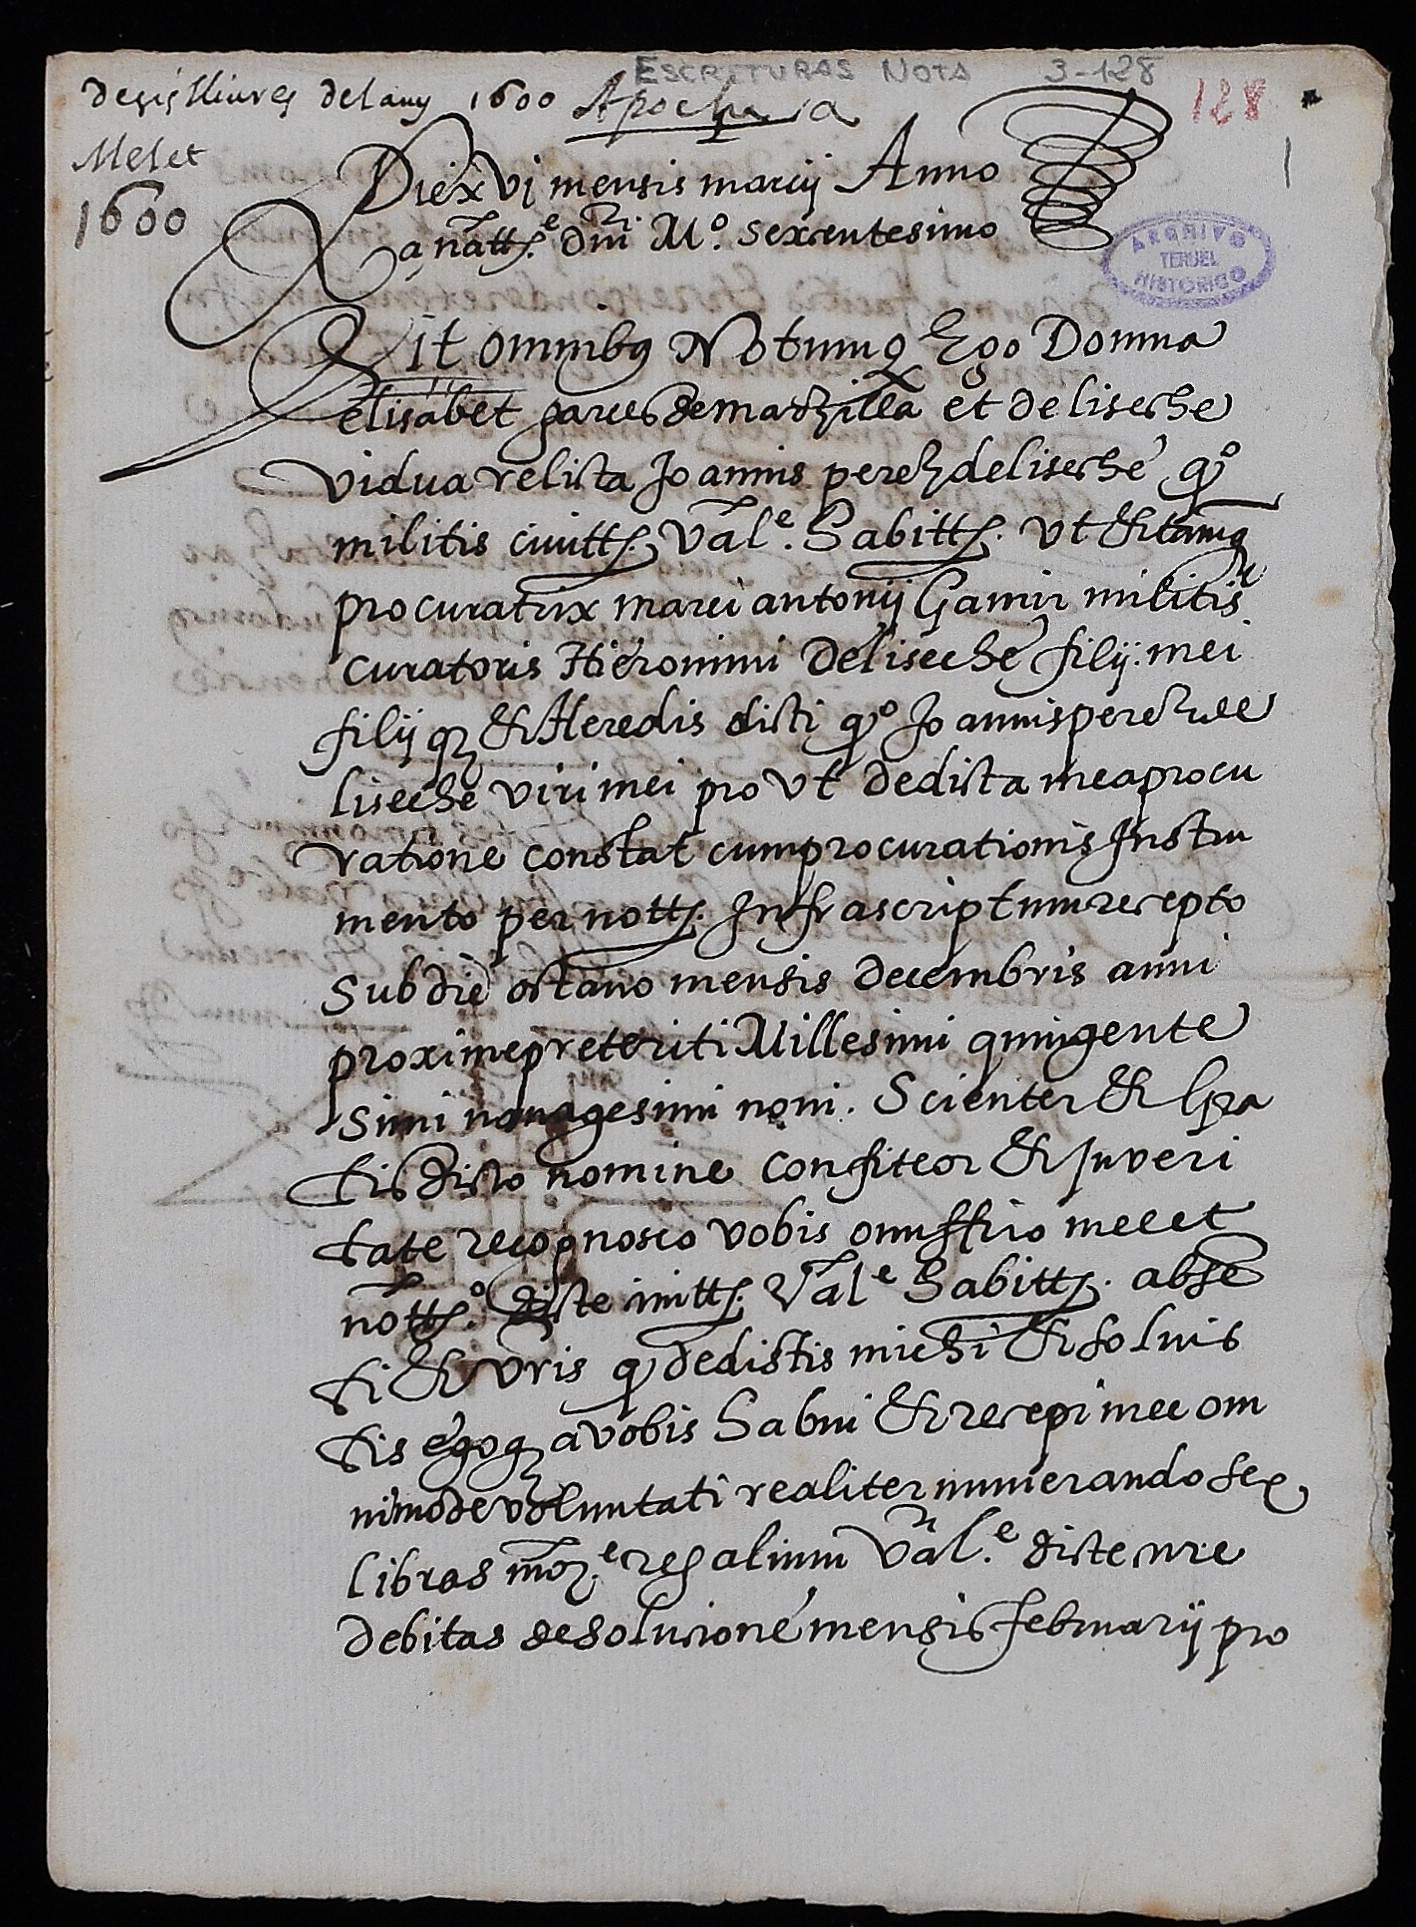 ESCRITURAS NOTA 3-128
de sis lliures del any 1600 Apocha
128
Melet
1600
1
Die xvj mensis marcij Anno
a natt.e dni M.o sexcentesimo
ARCHIVO
TERUEL
HISTORICO
Sit omnibus Notum q Ego Domna
elisabet garces de marzilla et de liseche
vidua relicta Joannis perez de liseche qo
militis ciuitt. Val.e habitt. ut & tamq
procuratrix marci antonij Gamir militis
curatoris Hieronimi de liseche filij mei
filij q & Heredis dicti qo Joannis perez de
liseche viri mei pro ut de dicta mea procu
ratione constat cum procurationis Instru
mento per nott. Infrascriptum recepto
sub die octavo mensis decembris anni
proxime preteriti Millesimi quingente
simi nonagesimi noni. Scienter & Gra
tis dicto nomine confiteor & In veri
tate recognosco vobis onuffrio
nott.o dicte ciuitt. Val.e habitt. absen
ti & vris q dedistis michi & soluis
tis egoq a vobis habui & recepi mee om
nimode voluntati realiter numerando sex
libras mo.e regalium Val.e dicte
debitas de solucione mensis februarij pro